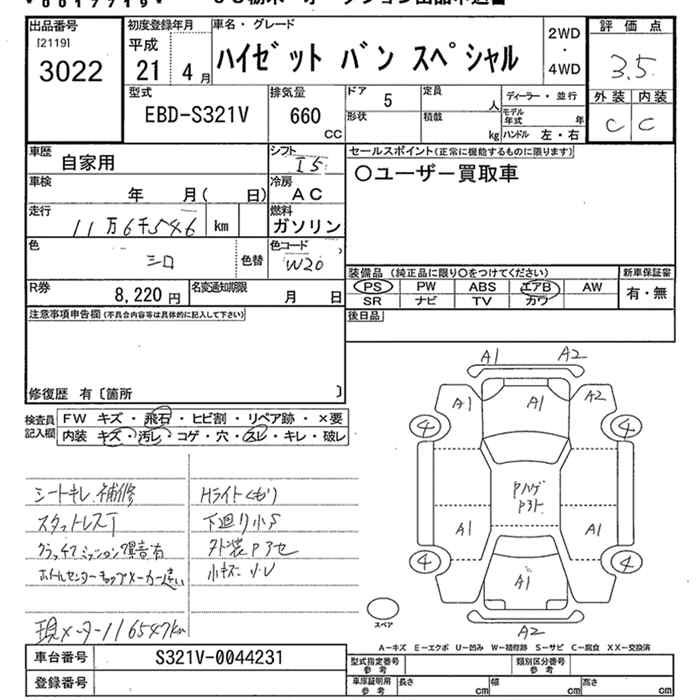 出品番号
[2119]
3022
初度登録年月
平成
21年 4月
車名・グレード
ハイゼット バン スペシャル
2WD
・
4WD
評価点
3.5
外装 内装
C C
型式
EBD-S321V
排気量
660
CC
ドア 5
形状
定員 人
積載 kg
ディーラー・並行
モデル年式 年
ハンドル 左・右
車歴 自家用
シフト I5
車検 年 月( 日)
冷房 AC
走行 11万6千546 km
燃料 ガソリン
色 シロ 色替
色コード W20
R券 8,220円
名変通知期限 月 日
セールスポイント(正常に機能するものに限ります)
〇ユーザー買取車
装備品 (純正品に限り〇をつけてください)
PS PW ABS エアB AW
SR ナビ TV カワ
新車保証書
有・無
後日品
注意事項申告欄(不具合内容等は具体的に記入して下さい)
修復歴 有〔箇所 〕
検査員記入欄
FW キズ・飛石・ヒビ割・リペア跡・×要
内装 キズ・汚レ・コゲ・穴・スレ・キレ・破レ
シートキレ補修
Hライトくもり
スタットレスT
下廻り小S
外装Pアセ
ホイールセンターキャップメーカー違い
小キズ
現メーター116547km
A1 A2
A1 A1 A2
4 4
Pハゲ
A1 A1
4 4
A1
A2
スペア
A－キズ E－エクボ U－凹み W－補修跡 S－サビ C－腐食 XX－交換済
車台番号 S321V-0044231
登録番号
型式指定番号 参考
類別区分番号 参考
車庫証明用 参考
長さ cm 幅 cm 高さ cm